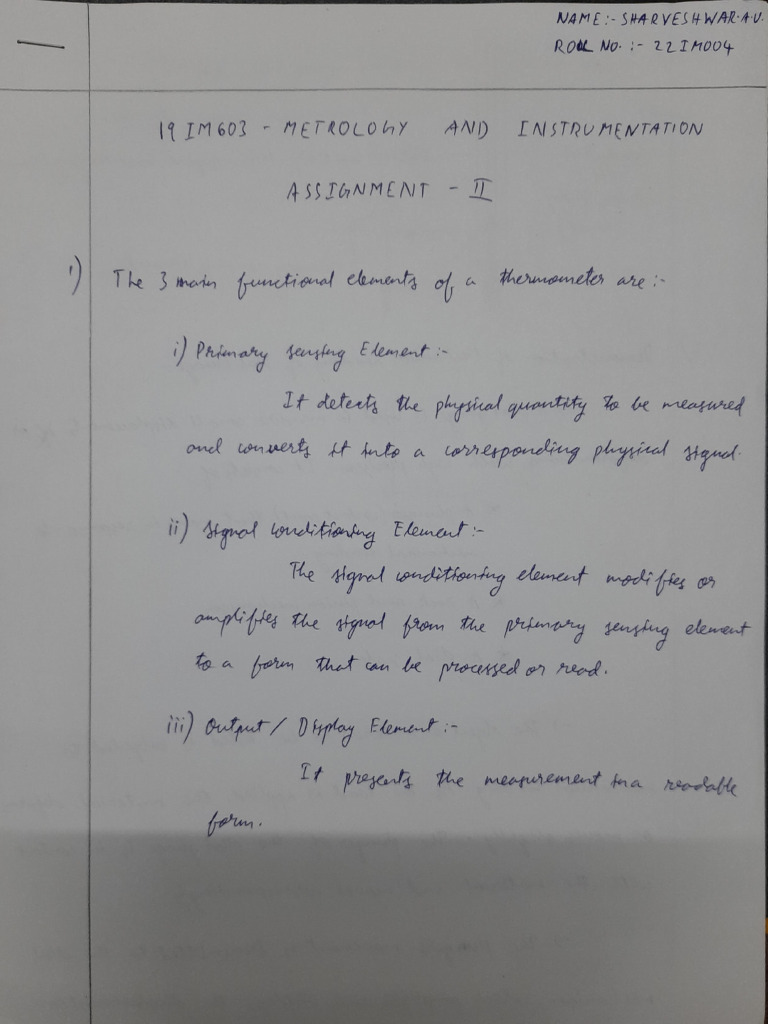 NAME:- SHARVESHWAR.A.U.
ROLL NO. :- 22IM004
19IM603 - METROLOGY AND INSTRUMENTATION
ASSIGNMENT - II
1) The 3 main functional elements of a thermometer are:-
i) Primary sensing Element:-
It detects the physical quantity to be measured
and converts it into a corresponding physical signal.
ii) Signal conditioning Element:-
The signal conditioning element modifies or
amplifies the signal from the primary sensing element
to a form that can be processed or read.
iii) Output / Display Element:-
It presents the measurement in a readable
form.